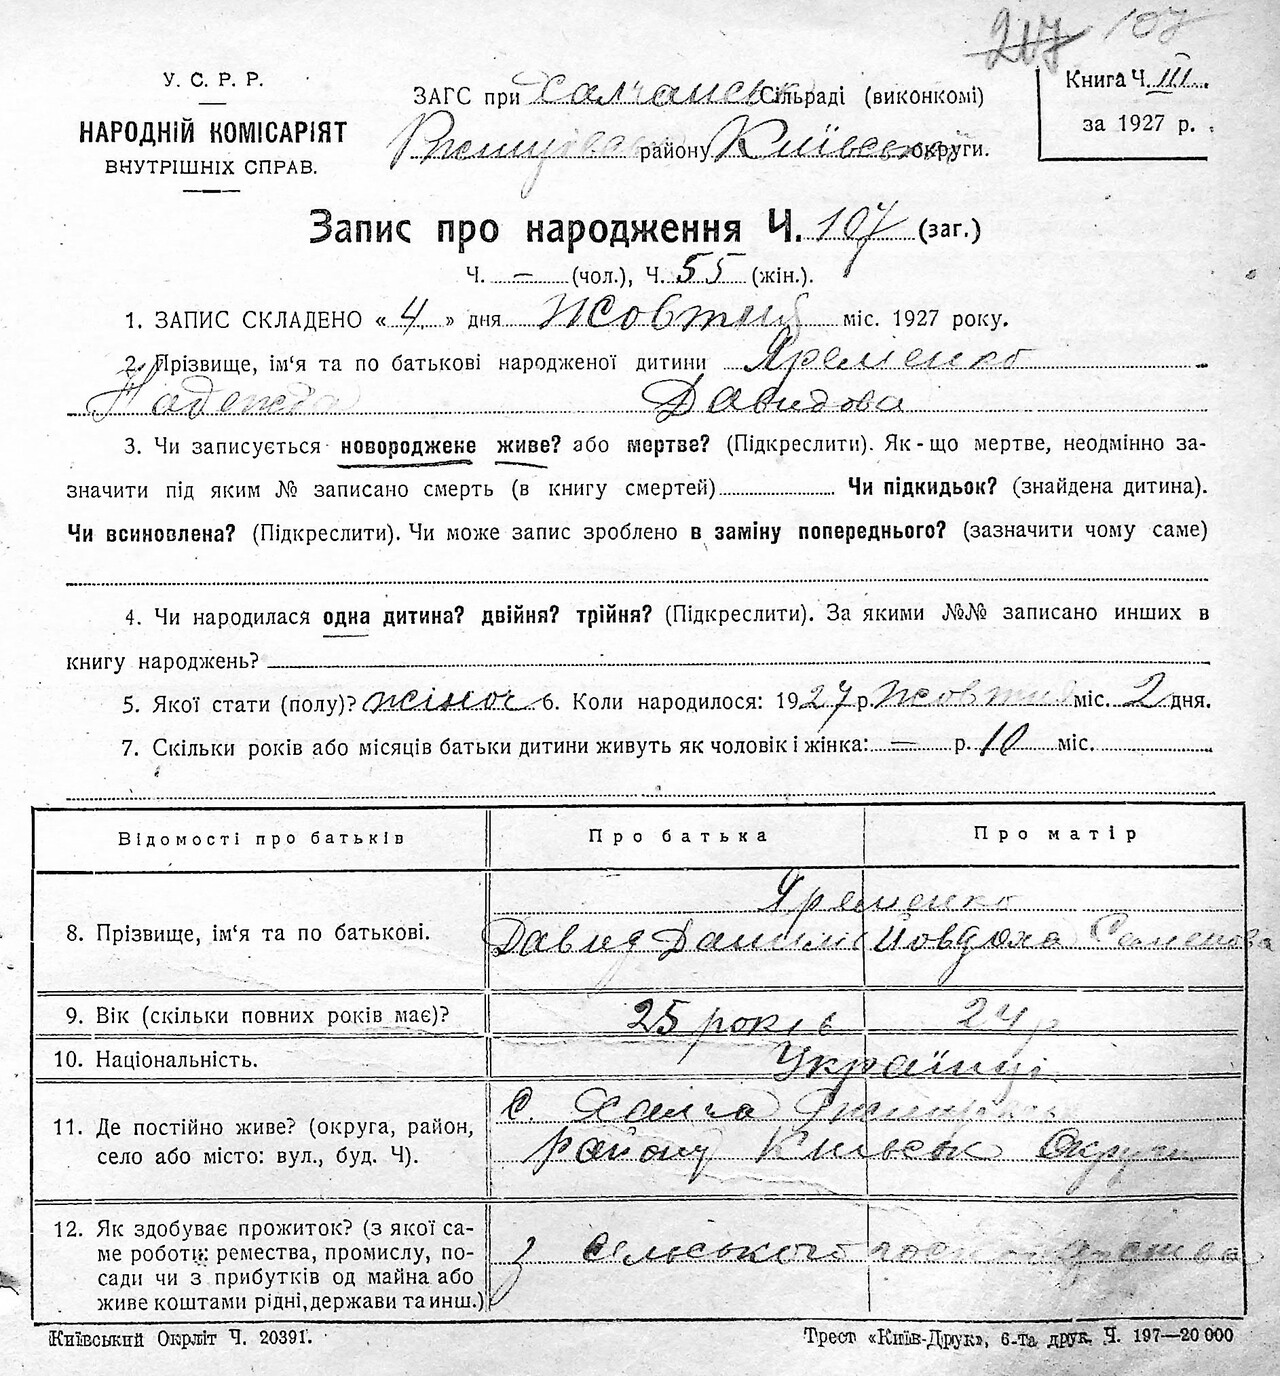 217 107
У. С. Р. Р.
НАРОДНІЙ КОМІСАРІЯТ
ВНУТРІШНІХ СПРАВ.
ЗАГС при Халчанськ Сільраді (виконкомі)
району Київської округи.
Книга Ч. III.
за 1927 р.
Запис про народження Ч. 107 (заг.)
Ч. — (чол.), Ч. 55 (жін.).
1. ЗАПИС СКЛАДЕНО « 4 » дня Жовтня міс. 1927 року.
2. Прізвище, ім‘я та по батькові народженої дитини Яременко
Надежда Давидова
3. Чи записується новороджене живе? або мертве? (Підкреслити). Як-що мертве, неодмінно за-
значити під яким № записано смерть (в книгу смертей) Чи підкидьок? (знайдена дитина).
Чи всиновлена? (Підкреслити). Чи може запис зроблено в заміну попереднього? (зазначити чому саме)
4. Чи народилася одна дитина? двійня? трійня? (Підкреслити). За якими №№ записано инших в
книгу народжень?
5. Якої стати (полу)? жіноч 6. Коли народилося: 1927 р. жовтня міс. 2 дня.
7. Скільки років або місяців батьки дитини живуть як чоловік і жінка: — р. 10 міс.
Відомості про батьків Про батька Про матір
8. Прізвище, ім‘я та по батькові.
Яременко
Давид Данилів Йовдоха Семенова
9. Вік (скільки повних років має)? 25 років 24 р
10. Національність. Українці
11. Де постійно живе? (округа, район,
село або місто: вул., буд. Ч).
с. Халча
району Київськ Округи
12. Як здобуває прожиток? (з якої са-
ме роботи: ремества, промислу, по-
сади чи з прибутків од майна або
живе коштами рідні, держави та инш.)
з сільського господарства
Київський Окрліт Ч. 20391. Трест «Київ-Друк», 6-та друк. Ч. 197—20 000